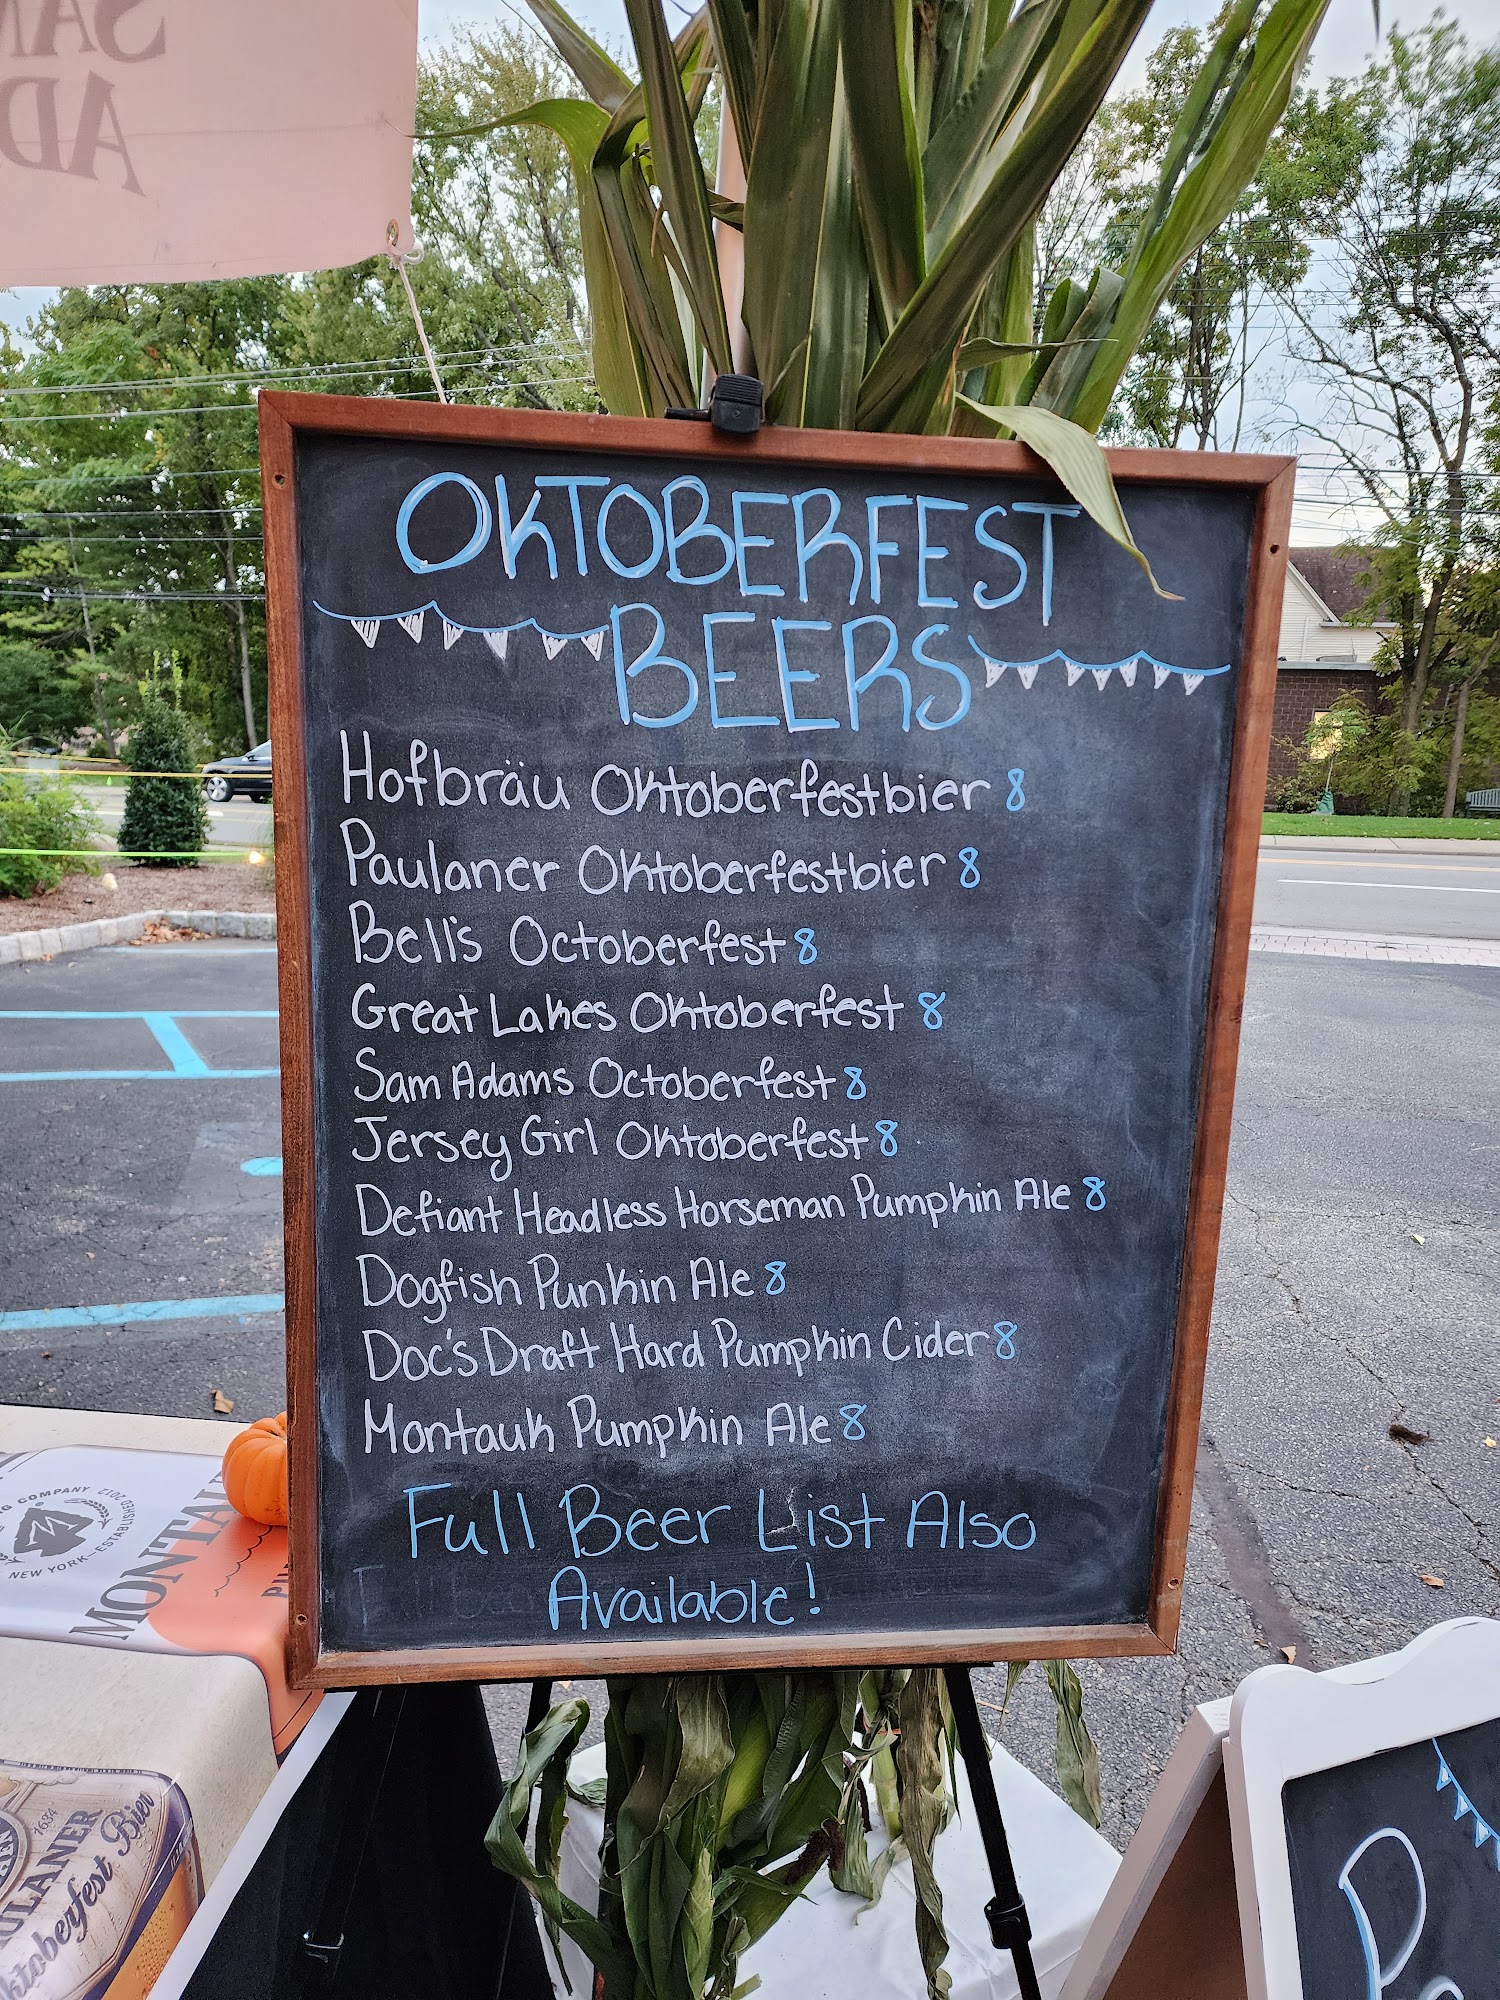 SAM
AD
OKTOBERFEST
BEERS
Hofbräu Oktoberfestbier 8
Paulaner Oktoberfestbier 8
Bell's Octoberfest 8
Great Lakes Oktoberfest 8
Sam Adams Octoberfest 8
Jersey Girl Oktoberfest 8
Defiant Headless Horseman Pumpkin Ale 8
Dogfish Punkin Ale 8
Doc's Draft Hard Pumpkin Cider 8
Montauk Pumpkin Ale 8
Full Beer List Also
Available!
G COMPANY
ESTABLISHED 2012
NEW YORK
MONTAU
PU
1634
ULANER
ktoberfest Bier